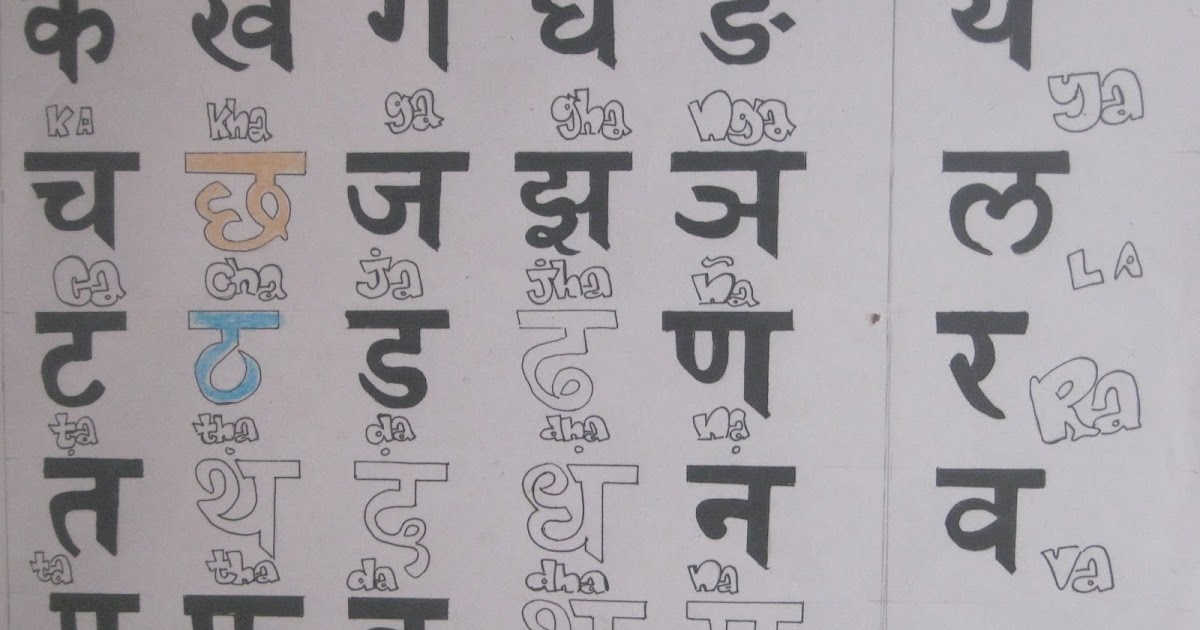 क ख ग घ ङ य
KA kha ga gha nga ya
च छ ज झ ञ ल
Ca Cha ja jha ña LA
ट ठ ड ढ ण र
ṭa ṭha ḍa ḍha ṇa Ra
त थ द ध न व
ta tha da dha na va